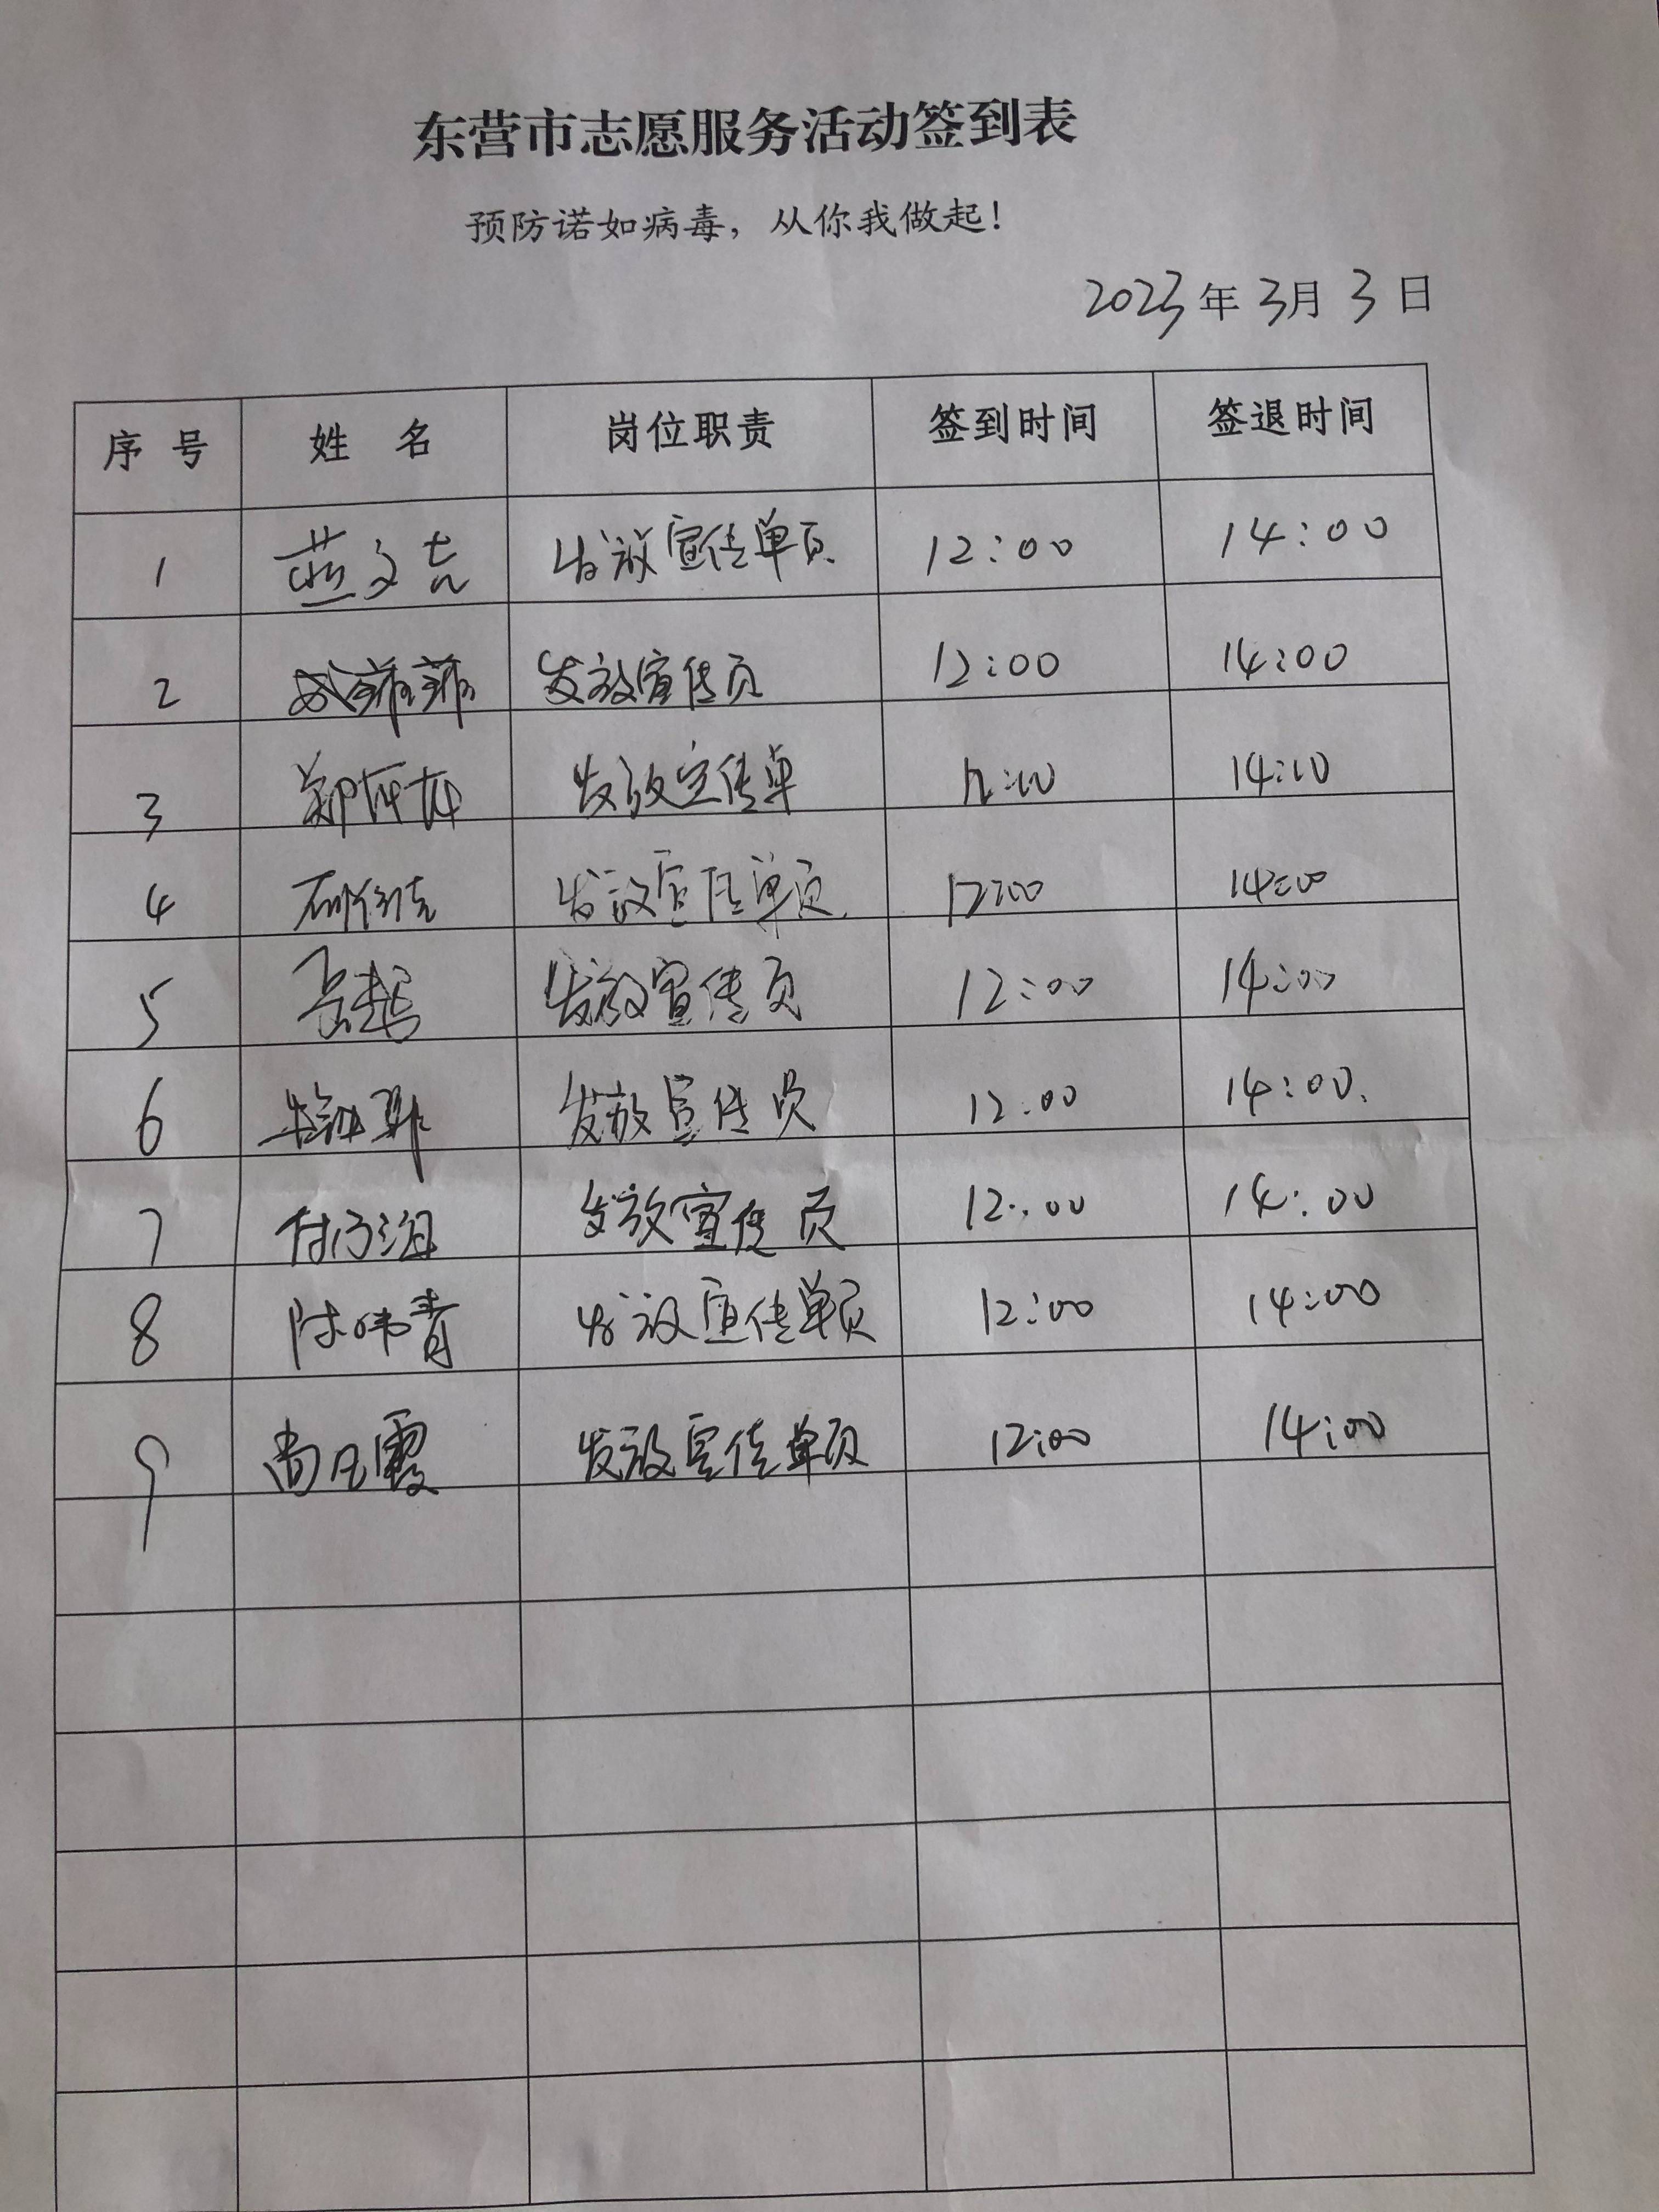 东营市志愿服务活动签到表
预防诺如病毒，从你我做起！
2023年3月3日
序 号 姓 名 岗位职责 签到时间 签退时间
1 发放宣传单页 12:00 14:00
2 发放宣传页 12:00 14:00
3 发放宣传单 12:00 14:00
4 发放宣传单页 12:00 14:00
5 发放宣传页 12:00 14:00
6 发放宣传页 12:00 14:00.
7 发放宣传页 12:00 14:00
8 陈伟青 发放宣传单页 12:00 14:00
9 发放宣传单页 12:00 14:00